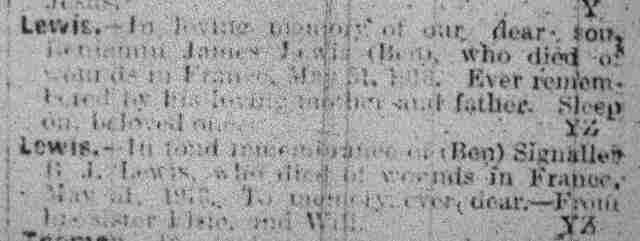 Y
Lewis.—In loving memory of our dear son,
Benjamin James Lewis (Ben), who died of
wounds in France, May 31, Ever remem-
bered by his loving mother and father. Sleep
on, beloved one. YZ
Lewis.—In fond remembrance of (Ben) Signaller
B. J. Lewis, who died of wounds in France,
May 31, To memory ever dear.—From
his sister Elsie, and Will. YZ